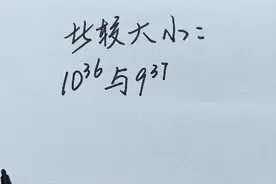 比较大小：
10³⁶与9³⁷